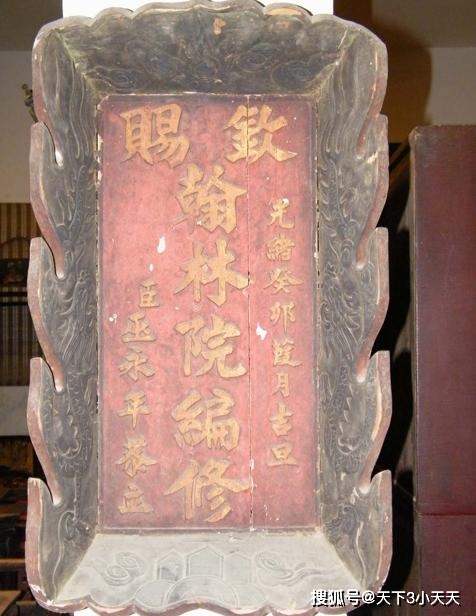 欽賜
光緒癸卯葭月吉旦
翰林院編修
臣丞永平恭立
搜狐号@天下3小天天